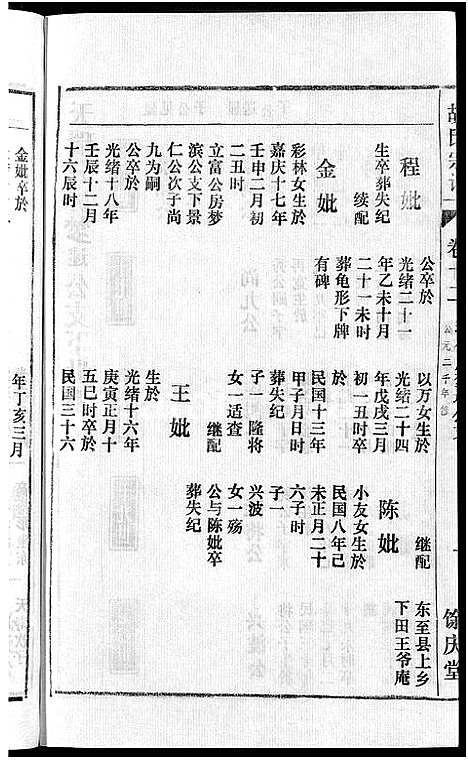 胡氏宗谱
卷十二
公元二千年修
馀庆堂
公卒於 以万女生於 继配 东至县上乡
程妣 光绪二十一 光绪二十四 下田王爷庵
生卒葬失纪 年乙未十月 年戊戌三月 陈妣
续配 二十一未时 初一丑时卒 小友女生於
葬龟形下牌 於 民国八年己
金妣 有碑 民国十三年 未正月二十
彩林女生於 甲子月日时 六子时
嘉庆十七年 葬失纪 子一
壬申二月初 子一隆将 兴波
二丑时 女一适查 女一殇
立富公房梦 继配 公与陈妣卒
滨公支下景 葬失纪
仁公次子尚 王妣
九为嗣 生於
公卒於 光绪十六年
光绪十八年 庚寅正月十
壬辰十二月 五巳时卒於
十六辰时 民国三十六
金妣卒於 年丁亥三月